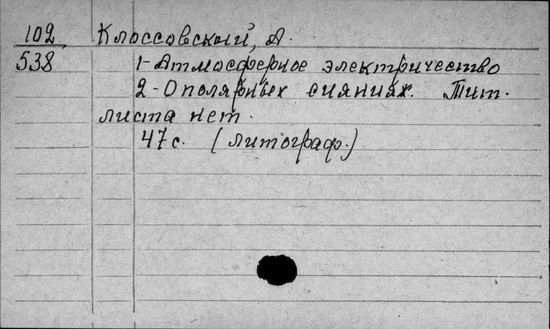 102 Клоссовский, А.
538 1-Атмосферное электричество
2-О полярных сияниях. Тит.
листа нет.
47 с. (литограф.)